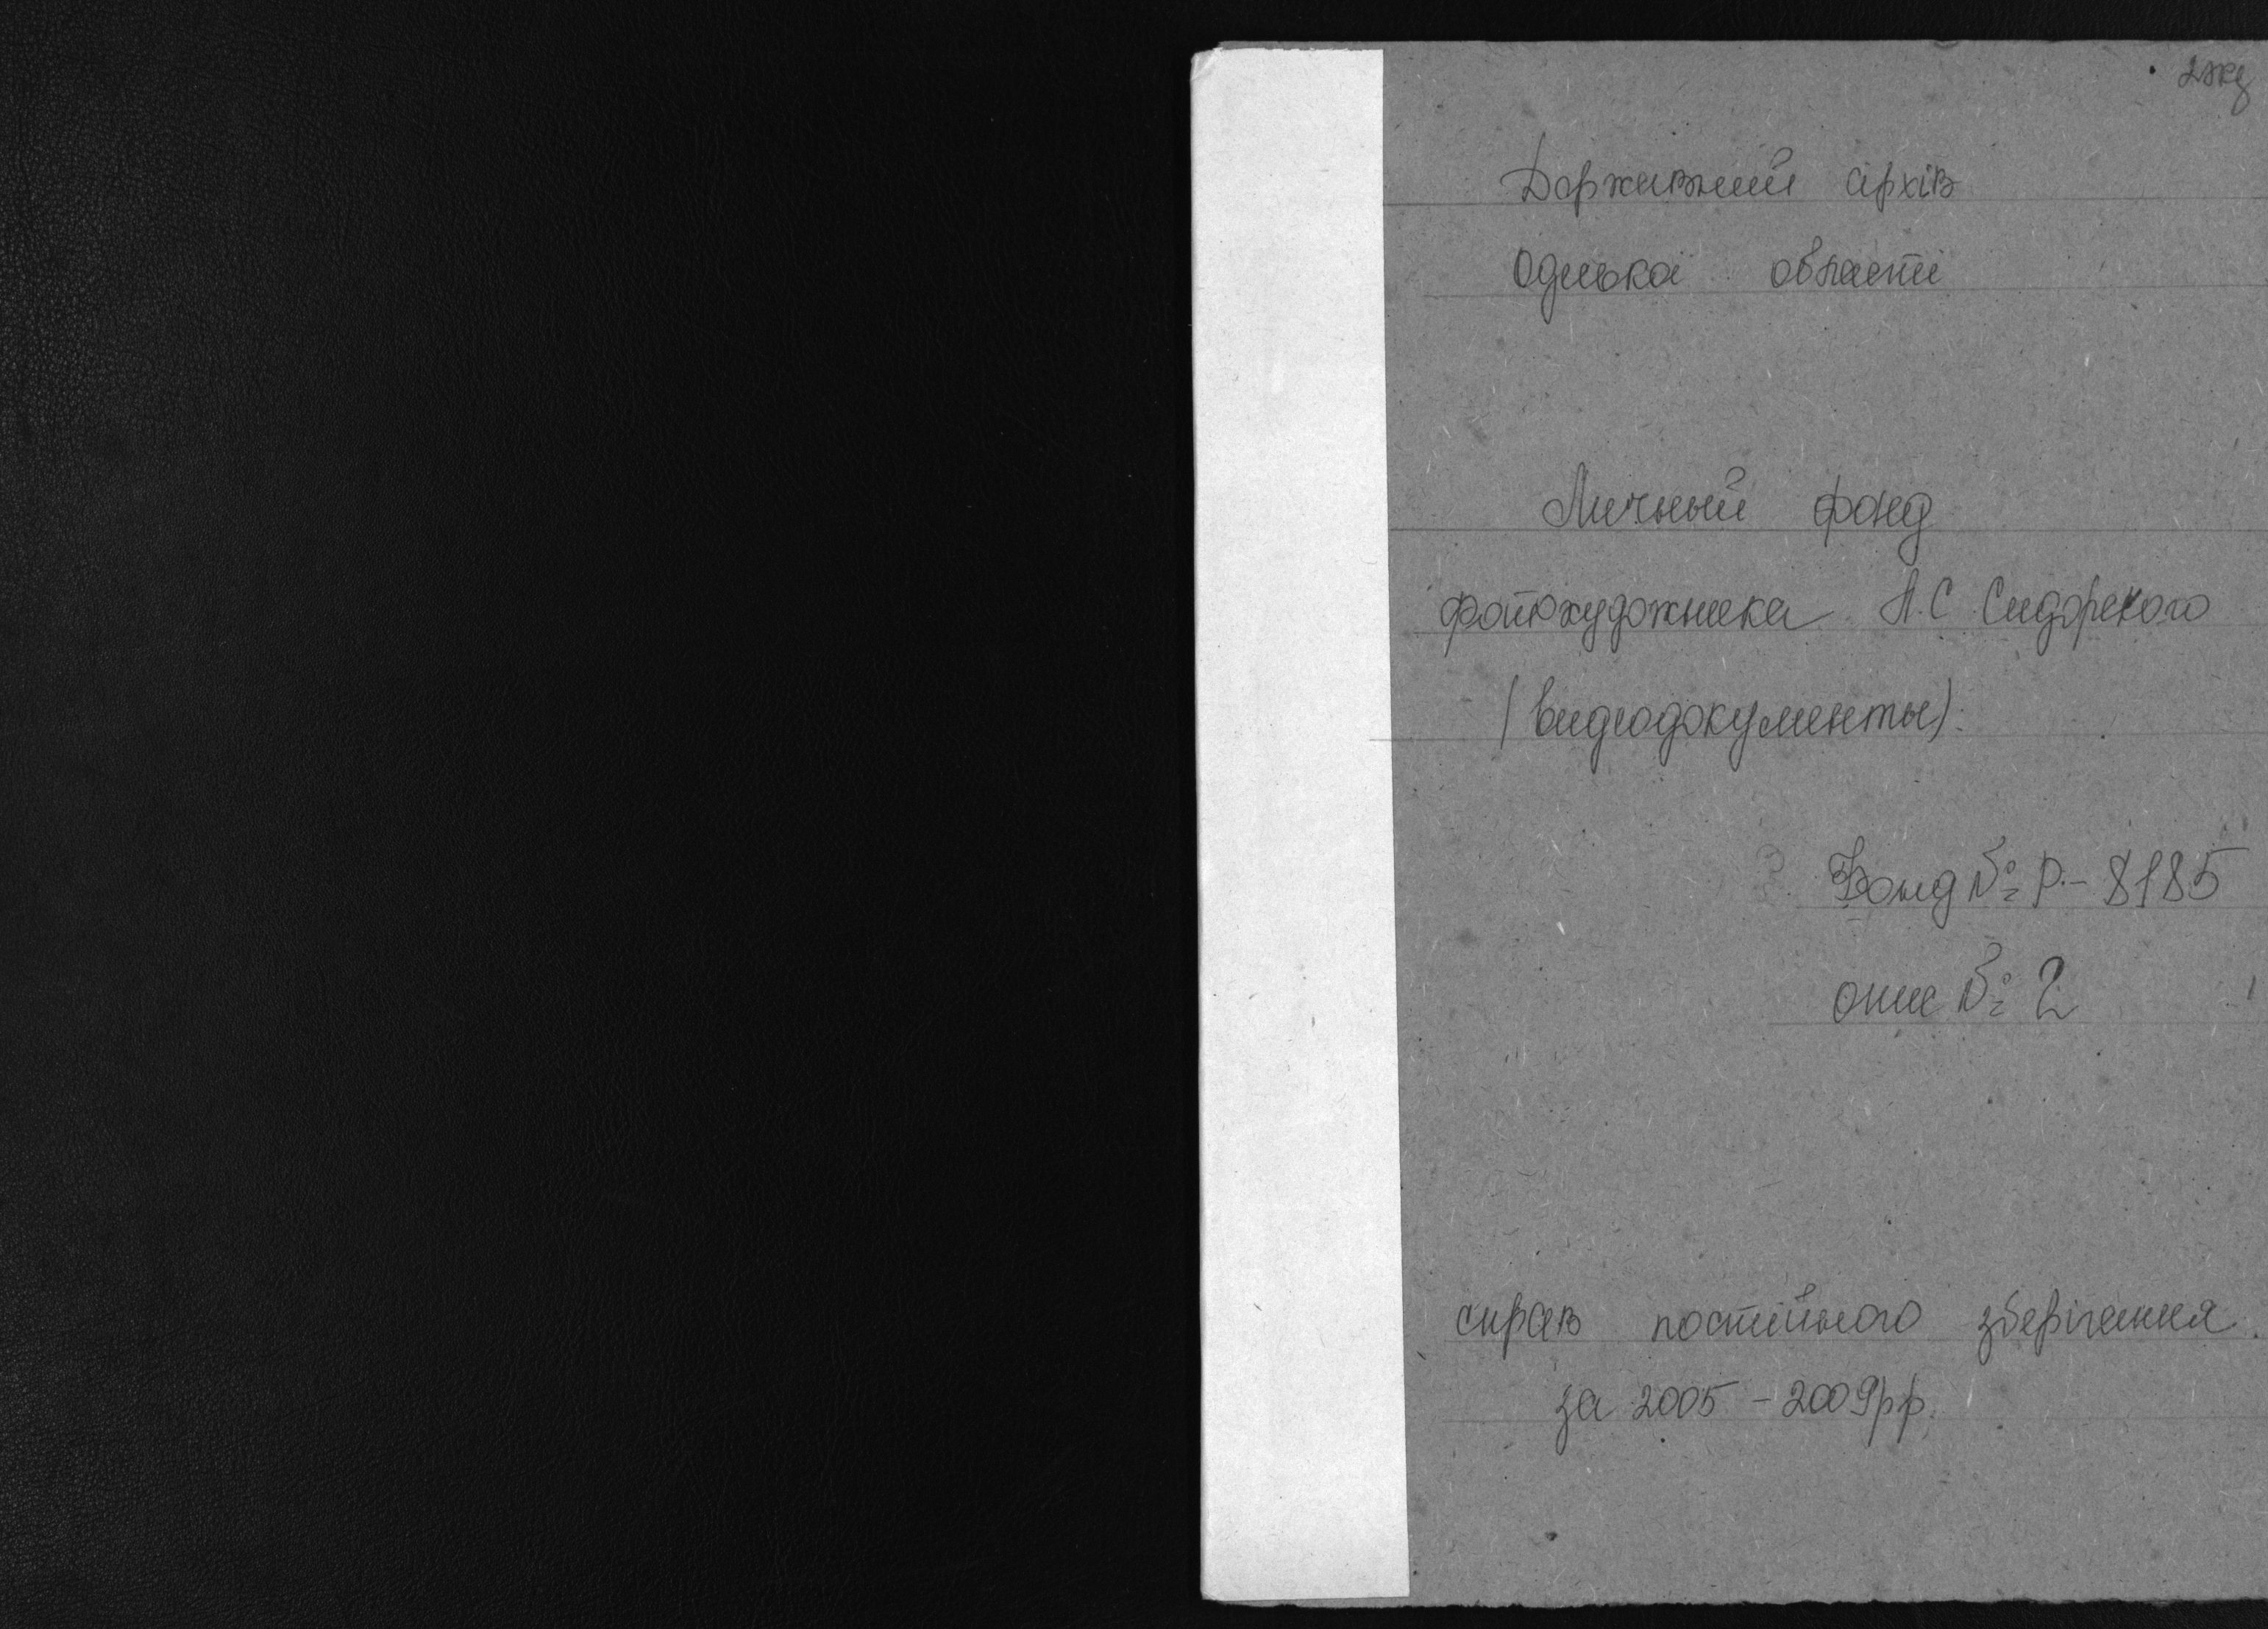 2 экз
Державний архів
Одеської області
Личный фонд
фотохудожника А.С. Сидорского
(видеодокументы).
Фонд № Р-8185
опис № 2
справ постійного зберігання.
за 2005 - 2009рр.